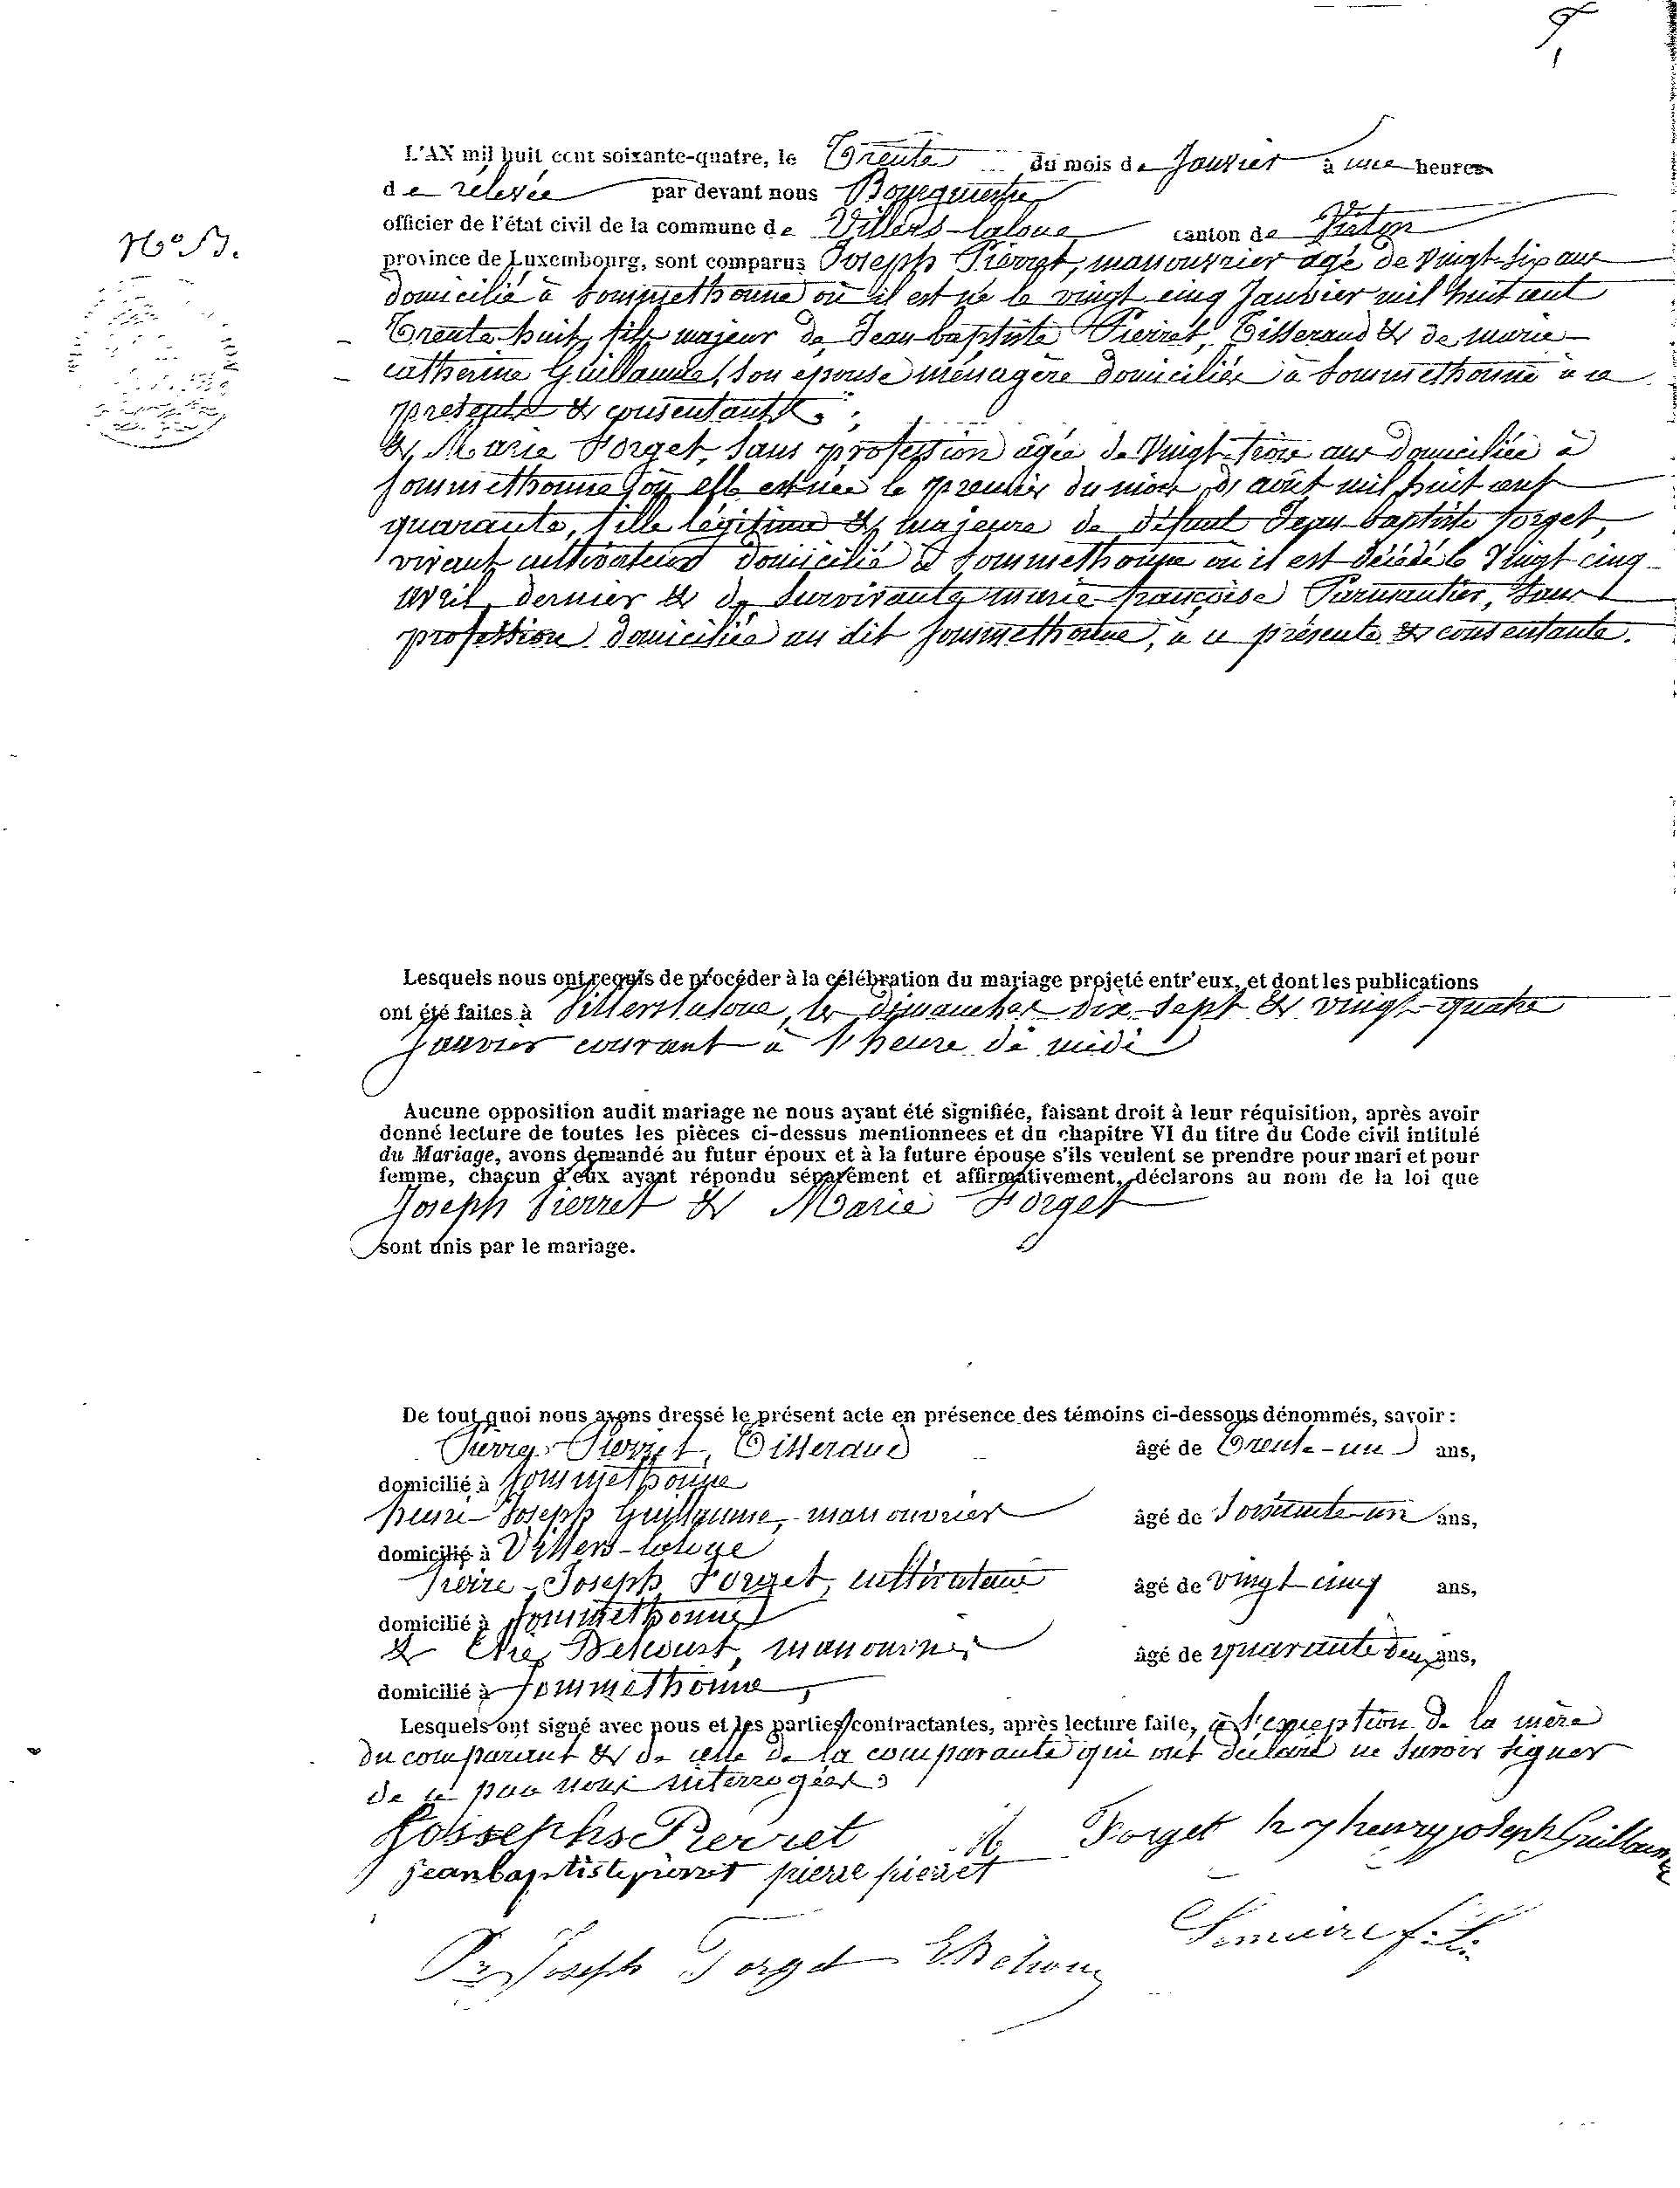 N° 5.
L'AN mil huit cent soixante-quatre, le Trente du mois de Janvier à une heures
de relevée par devant nous Bourgmestre
officier de l'état civil de la commune de Villers-laloue canton de Virton
province de Luxembourg, sont comparus Joseph Pierret, manouvrier agé de vingt-six ans
domicilié à Sommethonne où il est né le vingt cinq Janvier mil huit cent
Trente huit, fils majeur de Jean baptiste Pierret, Tisserand & de marie
catherine Guillaume, son épouse ménagère domiciliés à Sommethonne à ce
présents & consentants.;
& Marie Forget, sans profession agée de Vingt-trois ans domiciliée à
Sommethonne où elle est née le premier du mois d'août mil huit cent
quarante, fille légitime & majeure de défunt Jean-baptiste forget,
vivant cultivateur domicilié à Sommethonne où il est décédé le Vingt cinq
avril dernier & de survivante marie françoise Parmentier, sans
profession domiciliée au dit Sommethonne, à ce présente & consentante.
Lesquels nous ont requis de procéder à la célébration du mariage projeté entr'eux, et dont les publications
ont été faites à Villerslaloue, les dimanches dix-sept & vingt-quatre
Janvier courant à 1 heure de midi
Aucune opposition audit mariage ne nous ayant été signifiée, faisant droit à leur réquisition, après avoir
donné lecture de toutes les pièces ci-dessus mentionnees et du chapitre VI du titre du Code civil intitulé
du Mariage, avons demandé au futur époux et à la future épouse s'ils veulent se prendre pour mari et pour
femme, chacun d'eux ayant répondu séparément et affirmativement, déclarons au nom de la loi que
Joseph Pierret & Marie Forget
sont unis par le mariage.
De tout quoi nous avons dressé le présent acte en présence des témoins ci-dessous dénommés, savoir :
Pierre Pierret, Tisserand âgé de Trente-un ans,
domicilié à Sommethonne
henri-Joseph Guillaume, manouvrier âgé de Soixante-un ans,
domicilié à Villers-laloue
Pierre-Joseph Forget, cultivateur âgé de vingt cinq ans,
domicilié à Sommethonne
& manouvrier âgé de quarante deux ans,
domicilié à Sommethonne,
Lesquels ont signé avec nous et les parties contractantes, après lecture faite, à l'exception de la mère
du comparant & de celle de la comparante qui ont déclaré ne savoir signer
de ce par nous interrogées
Jossephs Pierret M Forget henry joseph Guillaume
jeanbaptiste pierret pierre pierret
Pre Joseph Forget